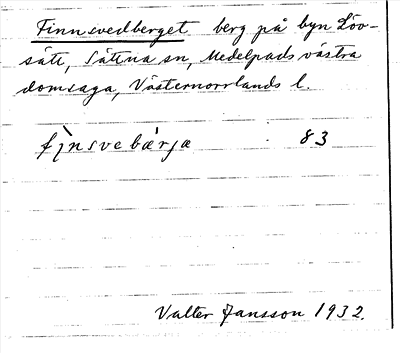 Finnsvedberget berg på byn Löv-
sätt, Sättna sn, Medelpads västra
domsaga, Västernorrlands l.
fı̀nsvebæ̀rjæ 83
Valter Jansson 1932.